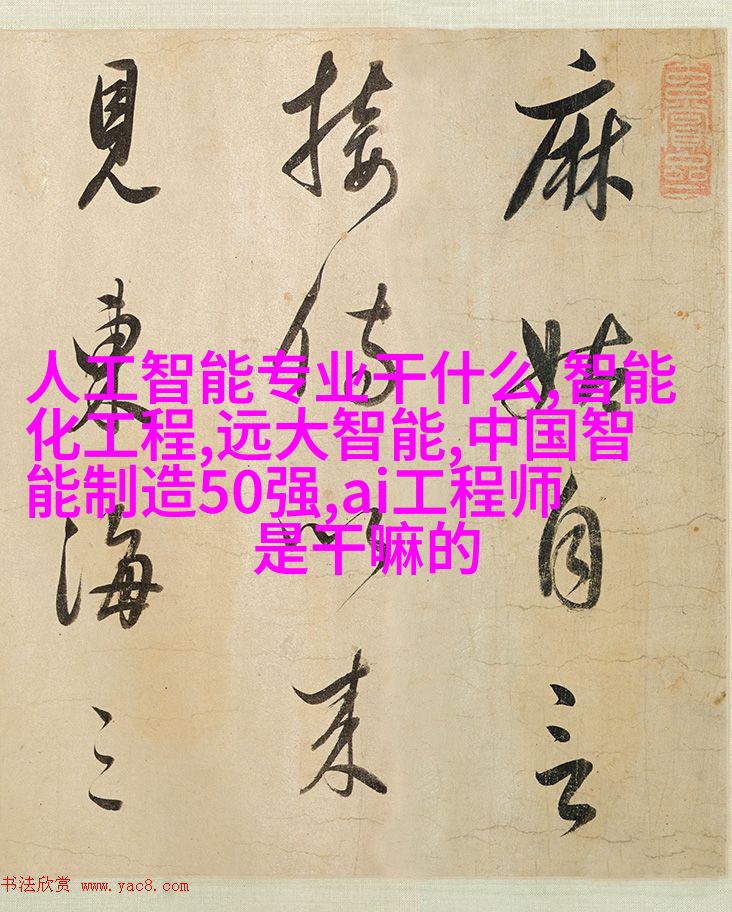 麻姑自言
接侍以来
見東海三
人工智能专业干什么,智能
化工程,远大智能,中国智
能制造50强,ai工程师
是干嘛的
书法欣赏 www.yac8.com